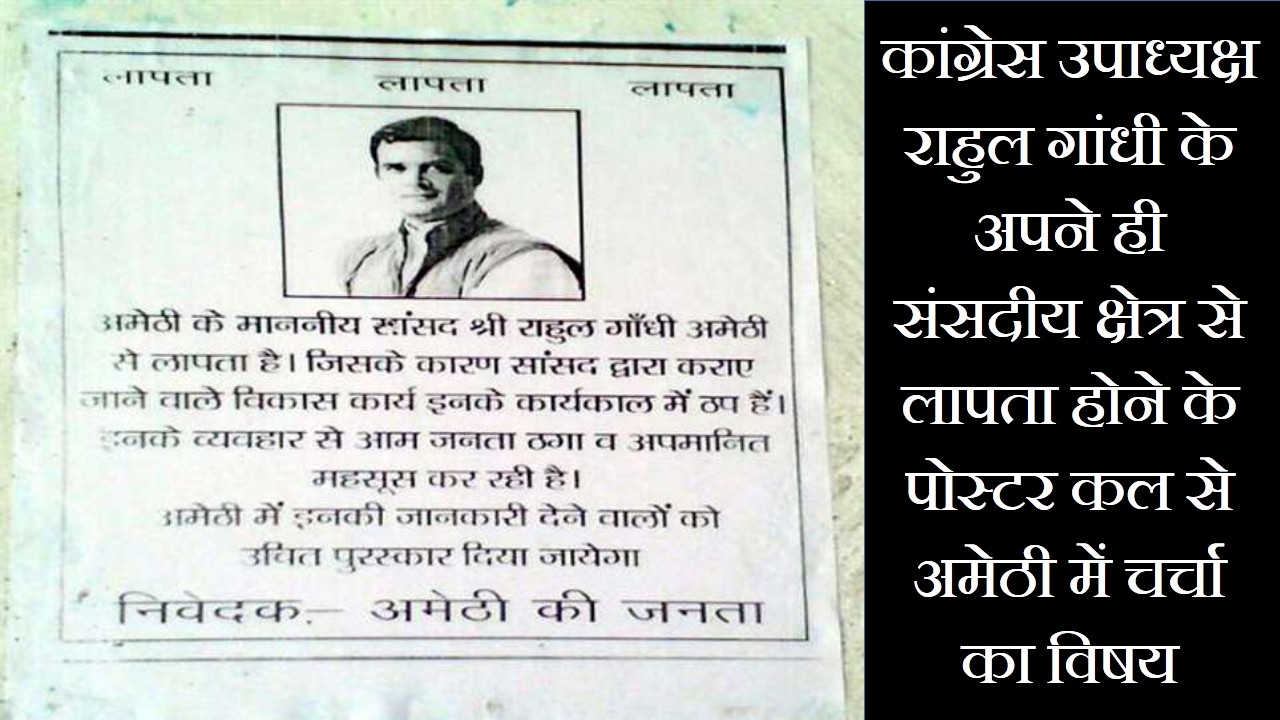 लापता लापता लापता
अमेठी के माननीय सांसद श्री राहुल गाँधी अमेठी
से लापता है। जिसके कारण सांसद द्वारा कराए
जाने वाले विकास कार्य इनके कार्यकाल में ठप हैं।
इनके व्यवहार से आम जनता ठगा व अपमानित
महसूस कर रही है।
अमेठी में इनकी जानकारी देने वालों को
उचित पुरस्कार दिया जायेगा
निवेदक:- अमेठी की जनता
कांग्रेस उपाध्यक्ष
राहुल गांधी के
अपने ही
संसदीय क्षेत्र से
लापता होने के
पोस्टर कल से
अमेठी में चर्चा
का विषय